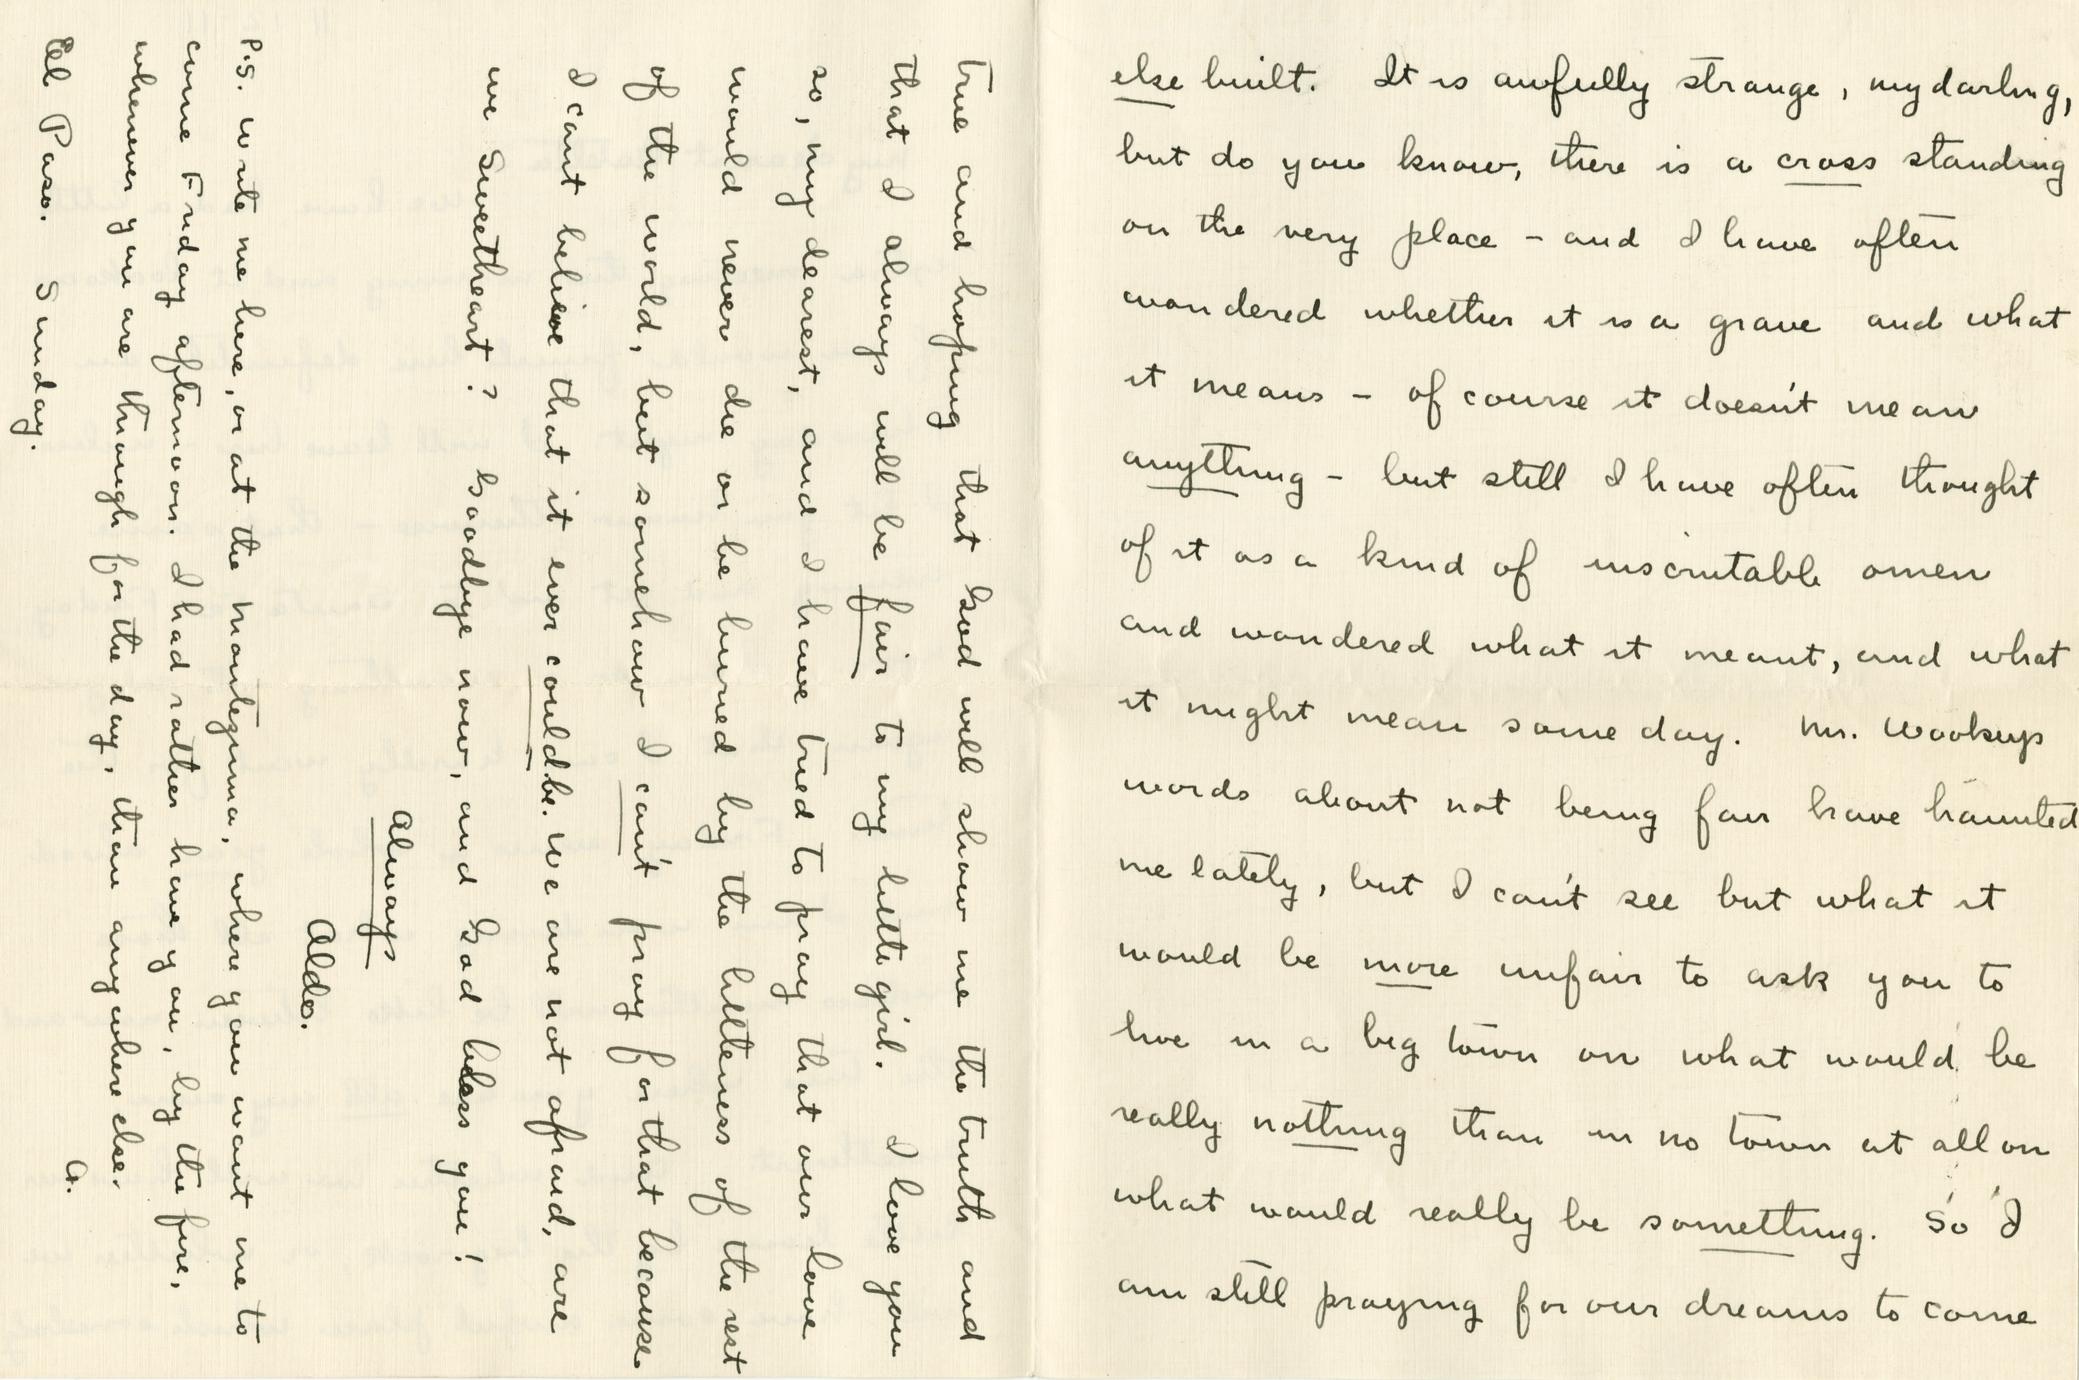 else built. It is awfully strange, my darling,
but do you know, there is a cross standing
on the very place - and I have often
wondered whether it is a grave and what
it means - of course it doesn't mean
anything - but still I have often thought
of it as a kind of inscrutable omen
and wondered what it meant, and what
it might mean some day. Mr. Wookeys
words about not being fair have haunted
me lately, but I can't see but what it
would be more unfair to ask you to
live in a big town on what would be
really nothing than in no town at all on
what would really be something. So I
am still praying for our dreams to come
true and hoping that God will show me the truth and
that I always will be fair to my little girl. I love you
so, my dearest, and I have tried to pray that our love
would never die or be buried by the littleness of the rest
of the world, but somehow I can't pray for that because
I cant believe that it ever could be. We are not afraid, are
we Sweetheart? Goodbye now, and God bless you!
Always
Aldo.
P.S. Write me here, or at the Montezuma, where you want me to
come Friday afternoon. I had rather have you, by the fire,
whenever you are through for the day, than anywhere else.
A.
El Paso. Sunday.